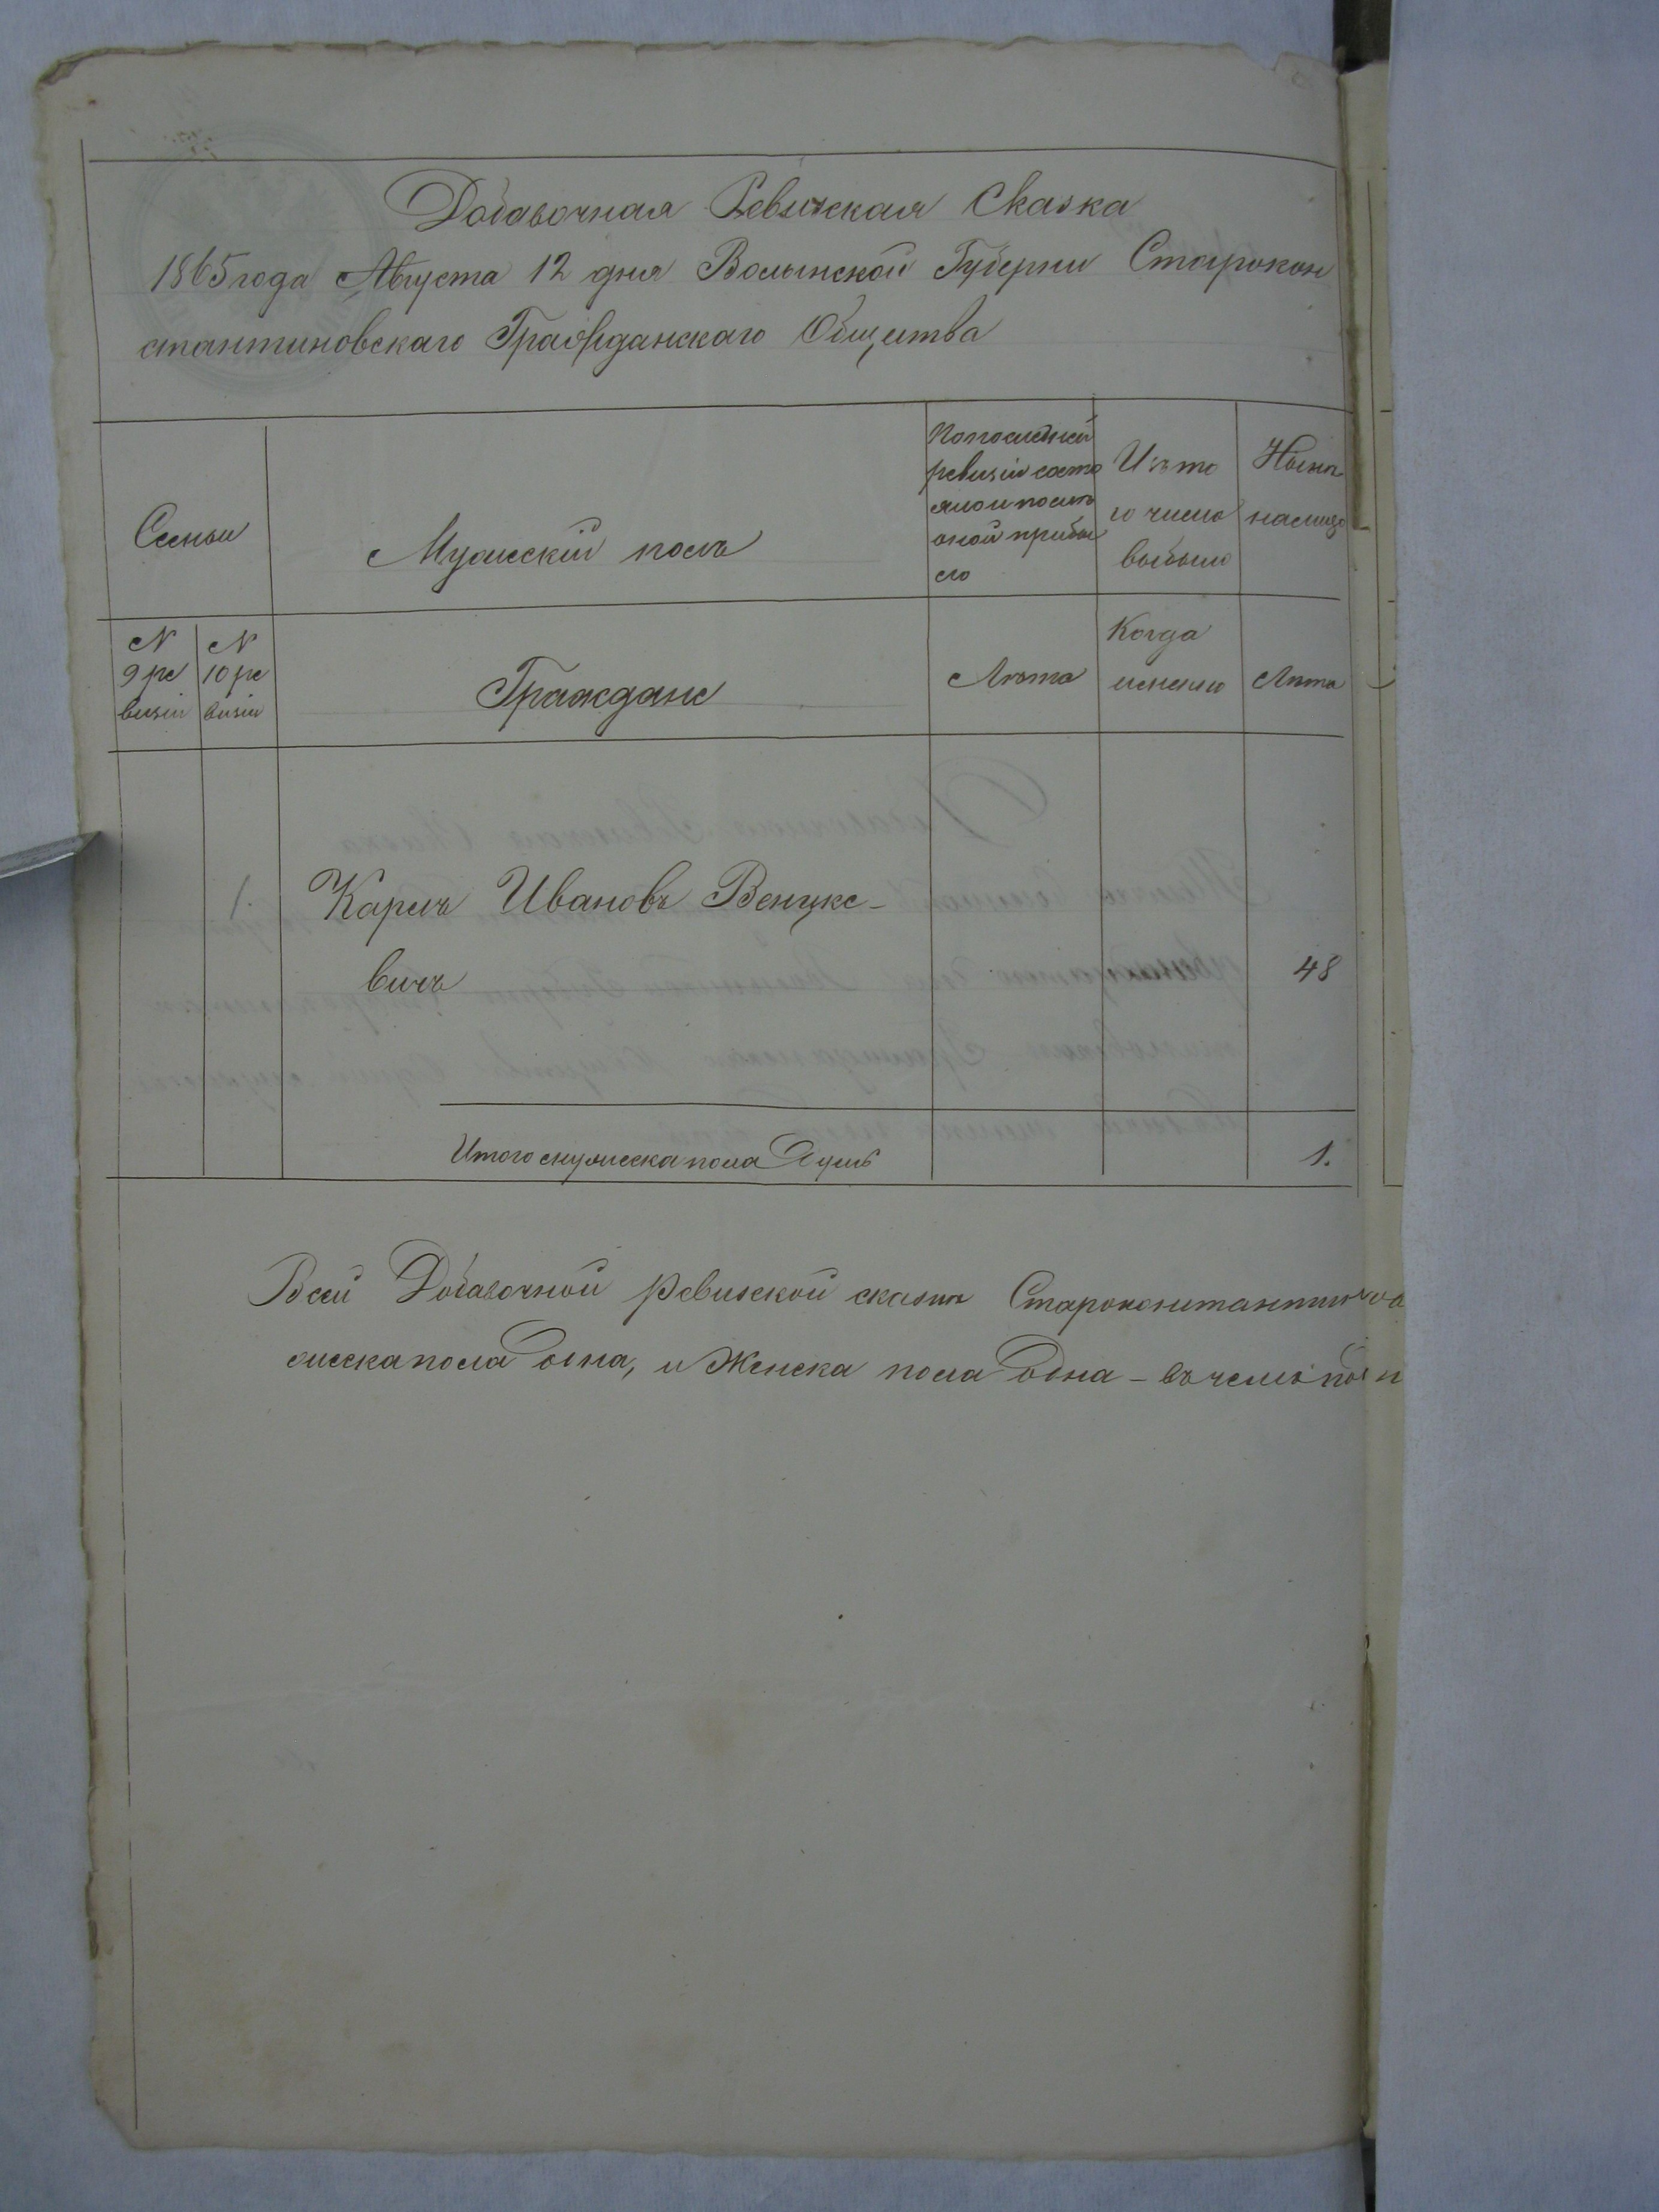 Добавочная Ревизская Сказка
1865 года Августа 12 дня Волынской Губерни Старокон
стантиновскаго Гражданскаго Общества
Семьи
Мужескій полъ
Попоследней
ревизіи состо
яло и послѣ
оной прибы
ло
Изъ то
го число
выбыло
Нынѣ
налицо
N
9 ре
визіи
N
10 ре
визіи
Граждане
Лѣта
Когда
именно
Лѣта
1.
Карлъ Ивановъ Венцке-
вичъ
48
Итого мужеска пола Душъ
1.
Всей Добавочной ревизской сказки
жеска пола одна, и Женска пола Одна - въ чемъ